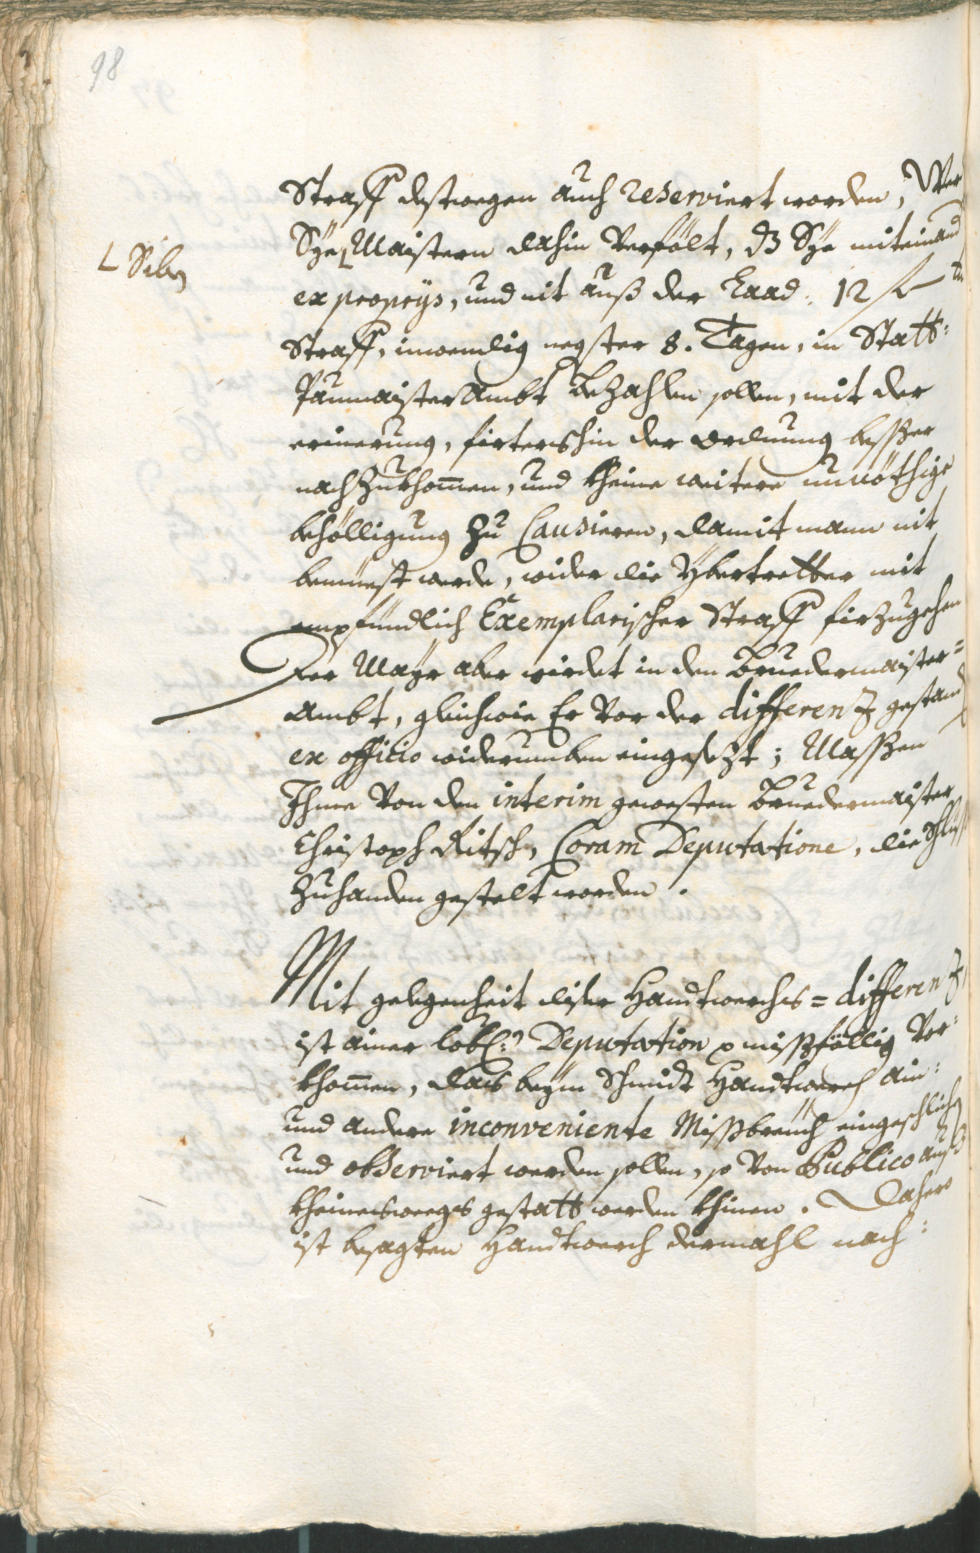 98
Straff destwegen auch reserviert worden, Wer
Sÿe Maistern dahin verfölt, dz Sÿe miteinand
L Siben
ex proprÿs, und nit auß der Laad: 12 f
Straff, inwendig negster 8. Tagen, in Statt=
Paumaister Ambt bezahlen sollen, mit der
erinerung, firtershin der ordnung besßer
nachzukhom̄en, und kheine weitere unnöthige
behölligung zu Causieren, damit mann nit
bemüest werde, wider die Ÿbertretter mit
empfündlich Exemplarischer Straff firzugehen
Der Maÿr aber wirdet in den Bruedermaister=
Ambt, gleichwie Er vor der differenz gestand
ex officio widerumben eingesezt; Massßen
Ihme von den interim gewesten Bruedermaister
Christoph Ritsch, Coram Deputatione, die Schlüss
zuhanden gestelt worden.
Mit gelegenheit diser Handtwerchs=differenz
ist ainer lobl: Deputation mißfällig vor=
khom̄en, das beÿm Schmidt Handtwerch ain=
und andere inconveniente Mißbreüch eingeschlichen
und observiert werden sollen, so von Publico auß
kheineswegs gestatt werden khinen. Dahero
ist besagten Handtwerch dermahl nach=